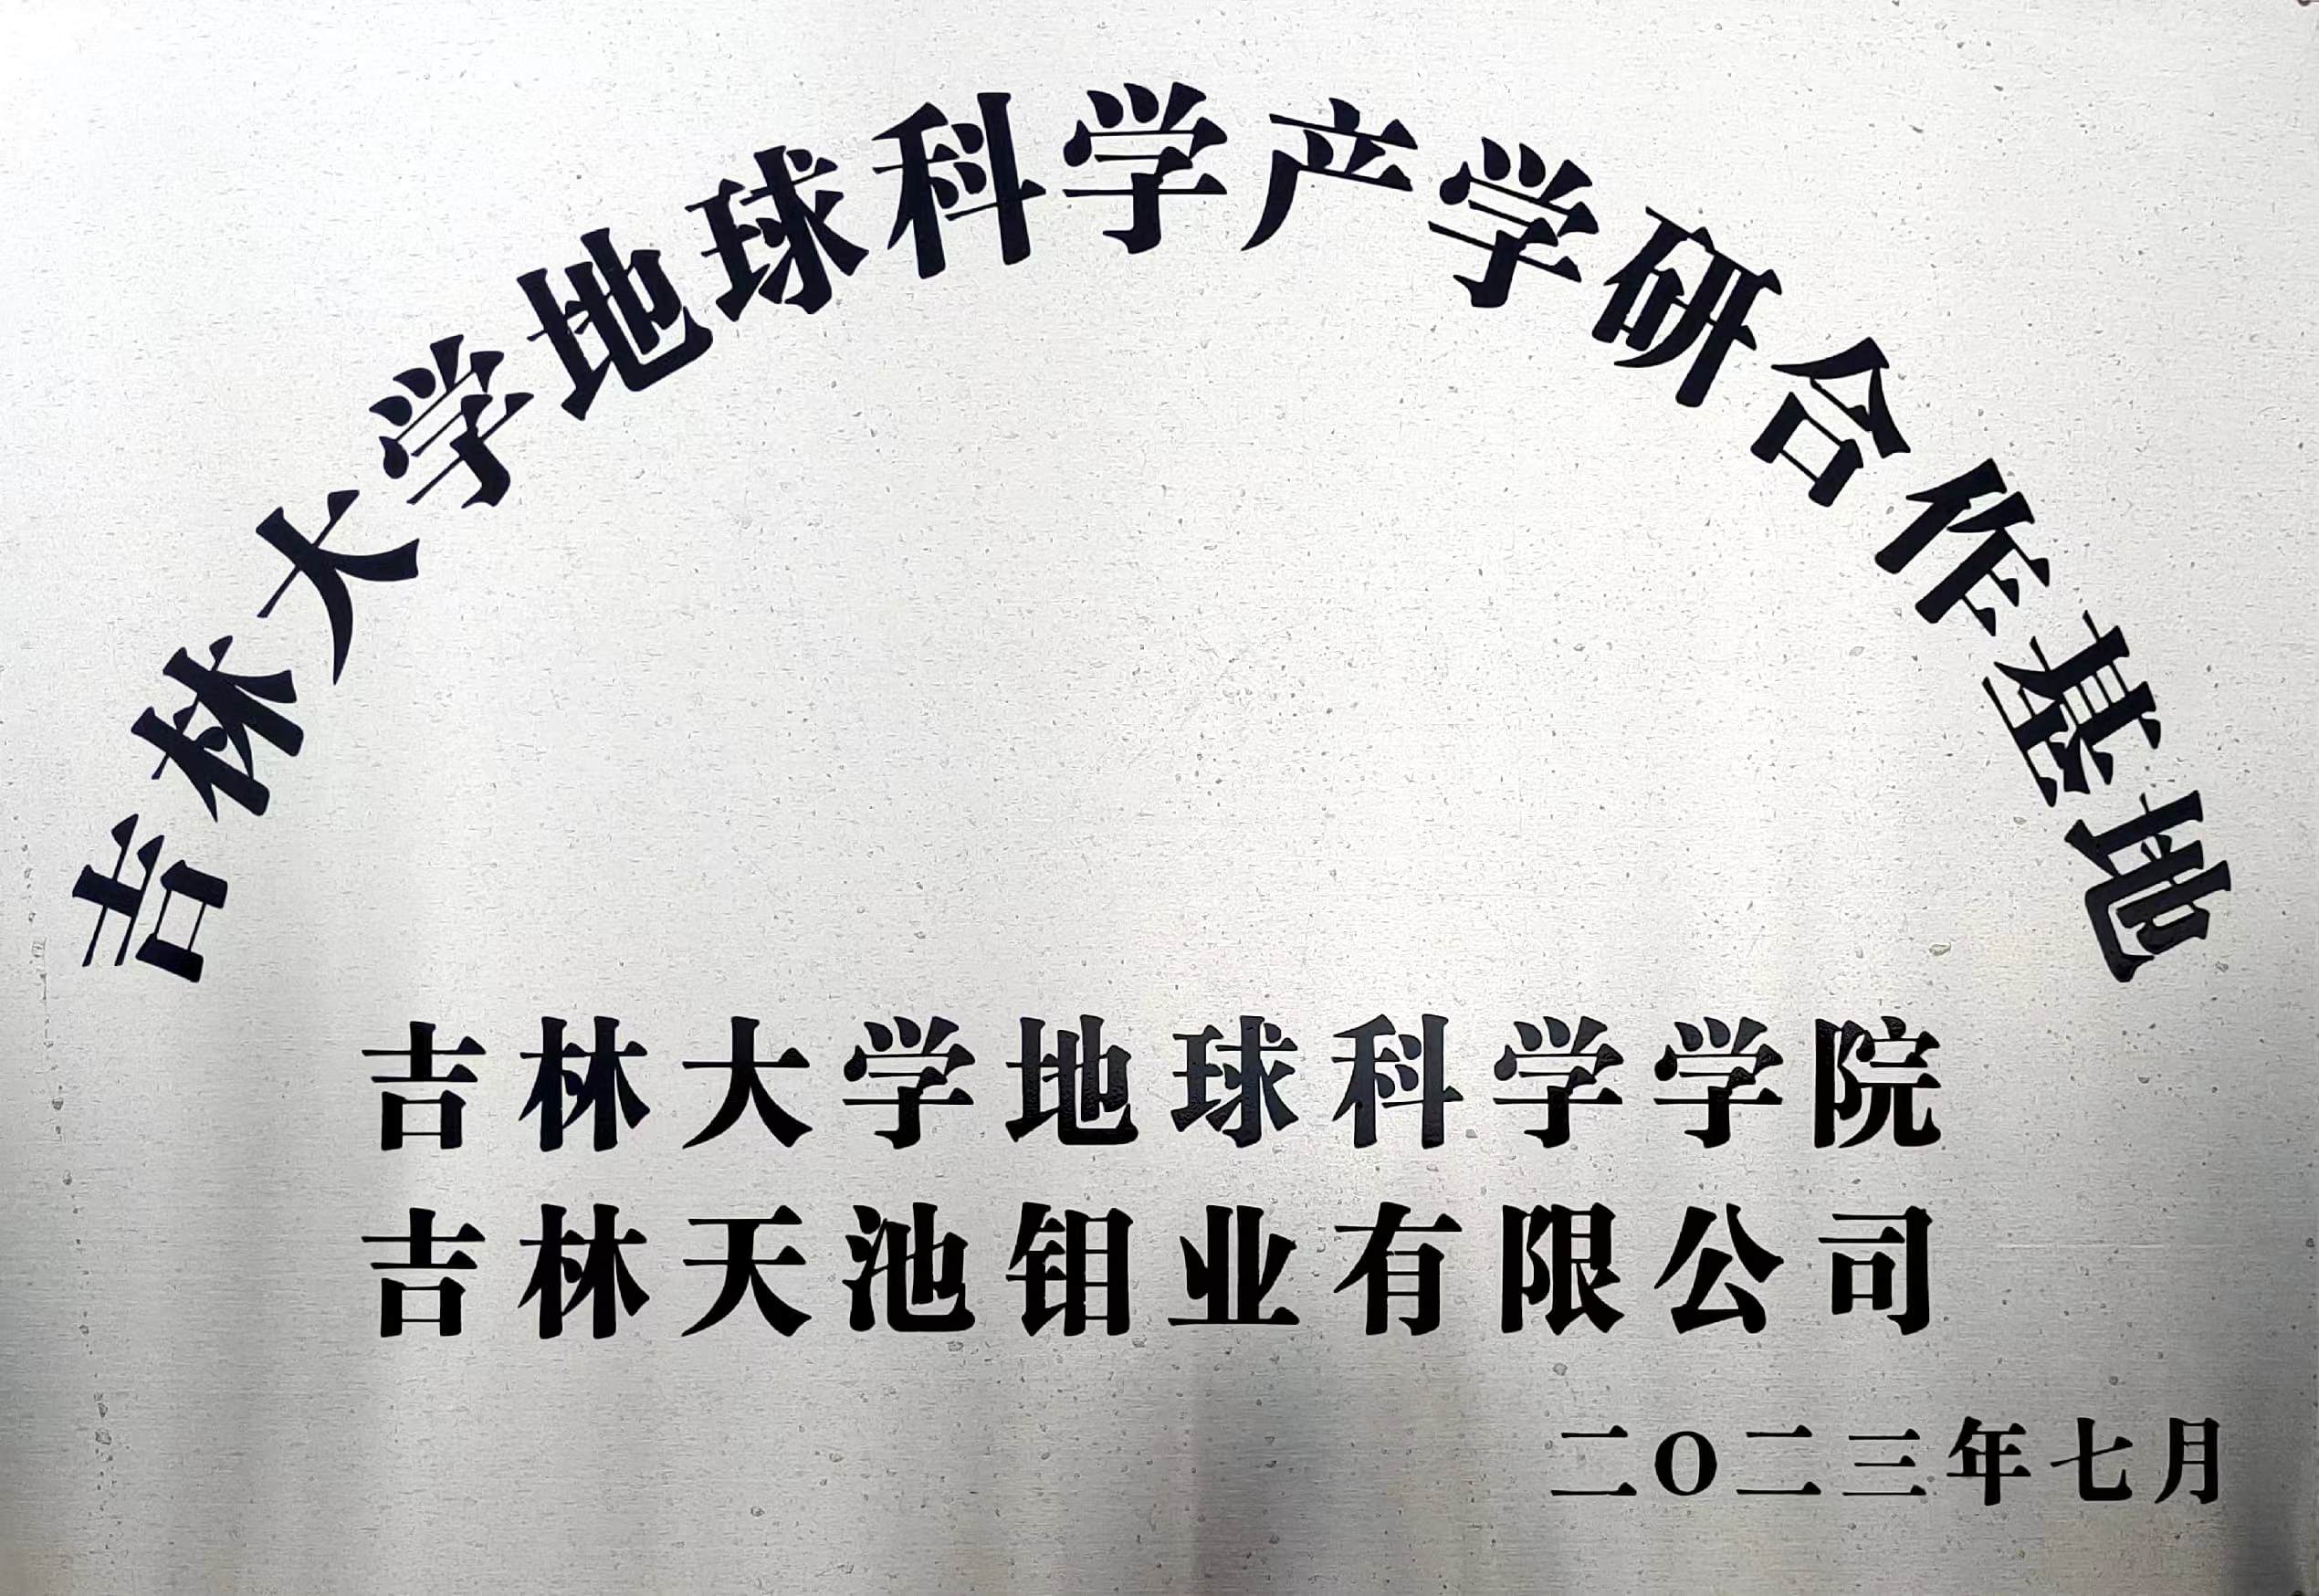 吉林大学地球科学产学研合作基地
吉林大学地球科学学院
吉林天池钼业有限公司
二O二三年七月